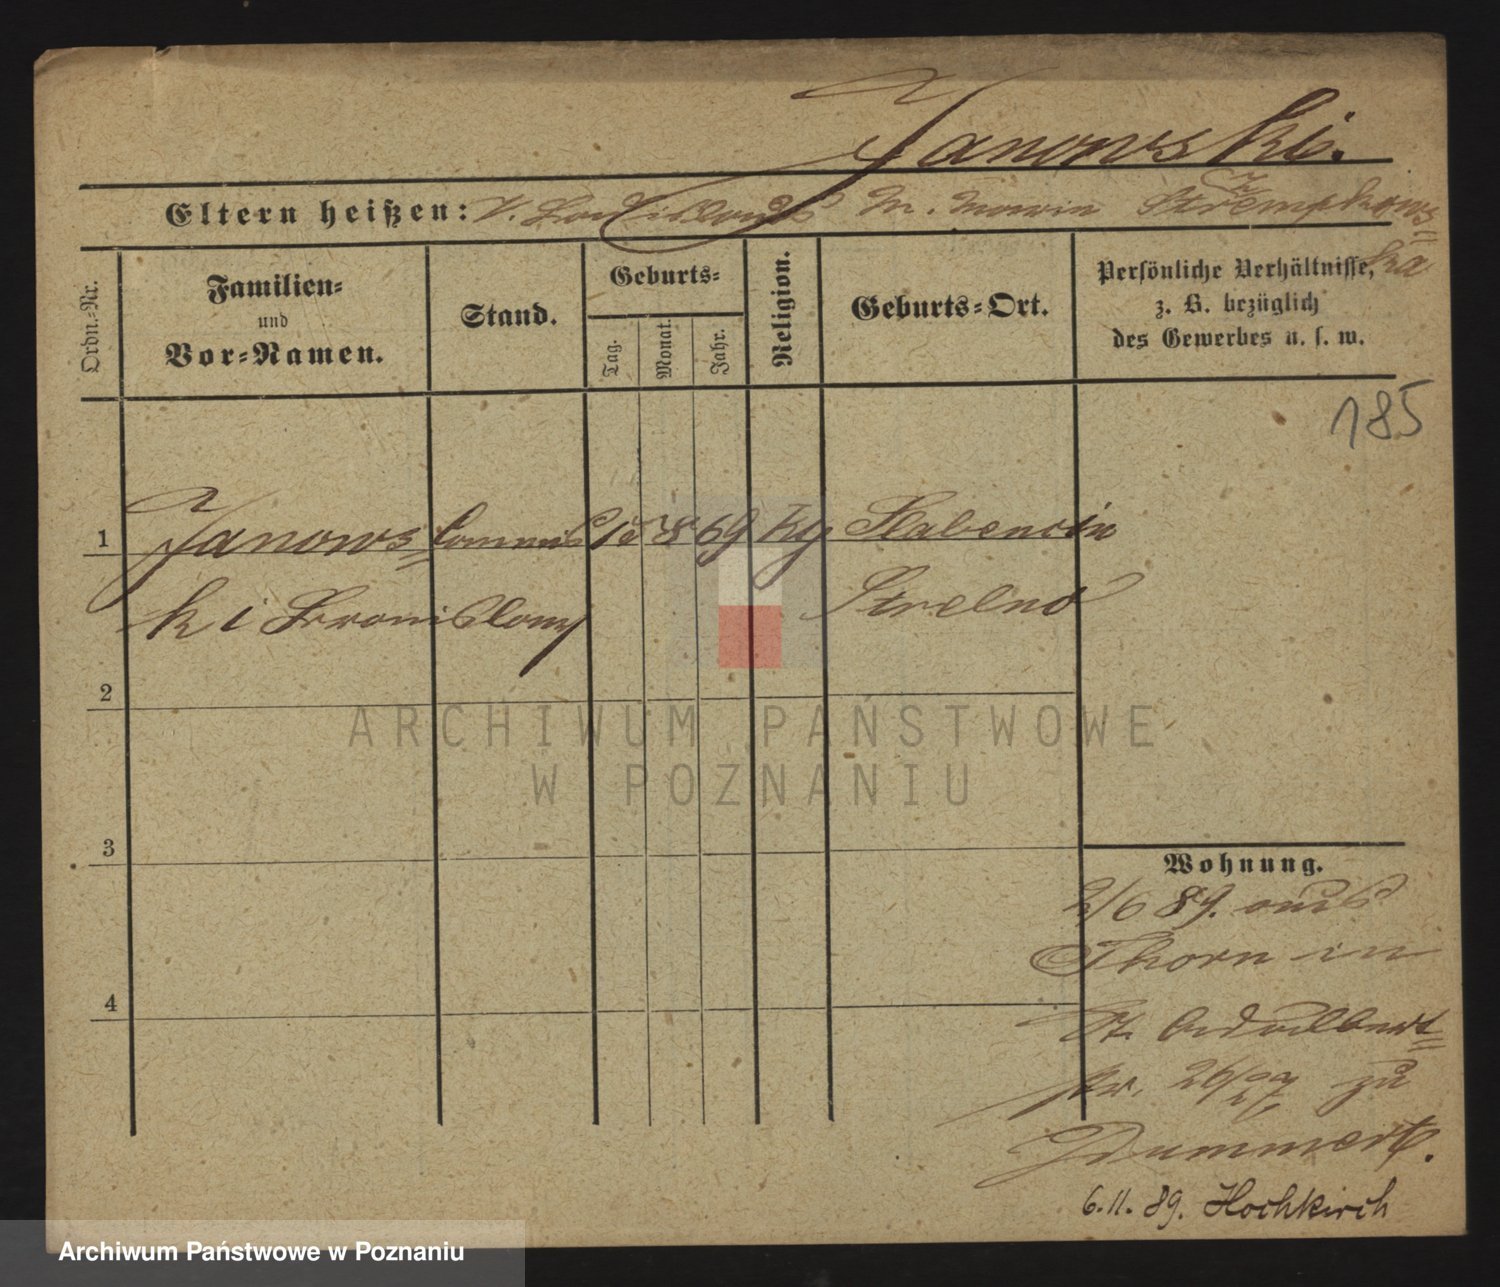 Janowski.
Eltern heißen: V. Ladislaus M. Maria
ka
Ordn.-Nr.
Familien-
und
Vor-Namen.
Stand.
Geburts-
Tag.
Monat.
Jahr.
Religion.
Geburts-Ort.
Persönliche Verhältnisse,
z. B. bezüglich
des Gewerbes u. s. w.
185
1 Janows- Commis 8 69 Kg
ki Bronislaw Strelno
2
ARCHIWUM PAŃSTWOWE
W POZNANIU
3
4
Wohnung.
2/6 89. aus
Thorn in
St. Adalbert-
str. 26/27 zu
Dummert.
6.11.89. Hochkirch
Archiwum Państwowe w Poznaniu